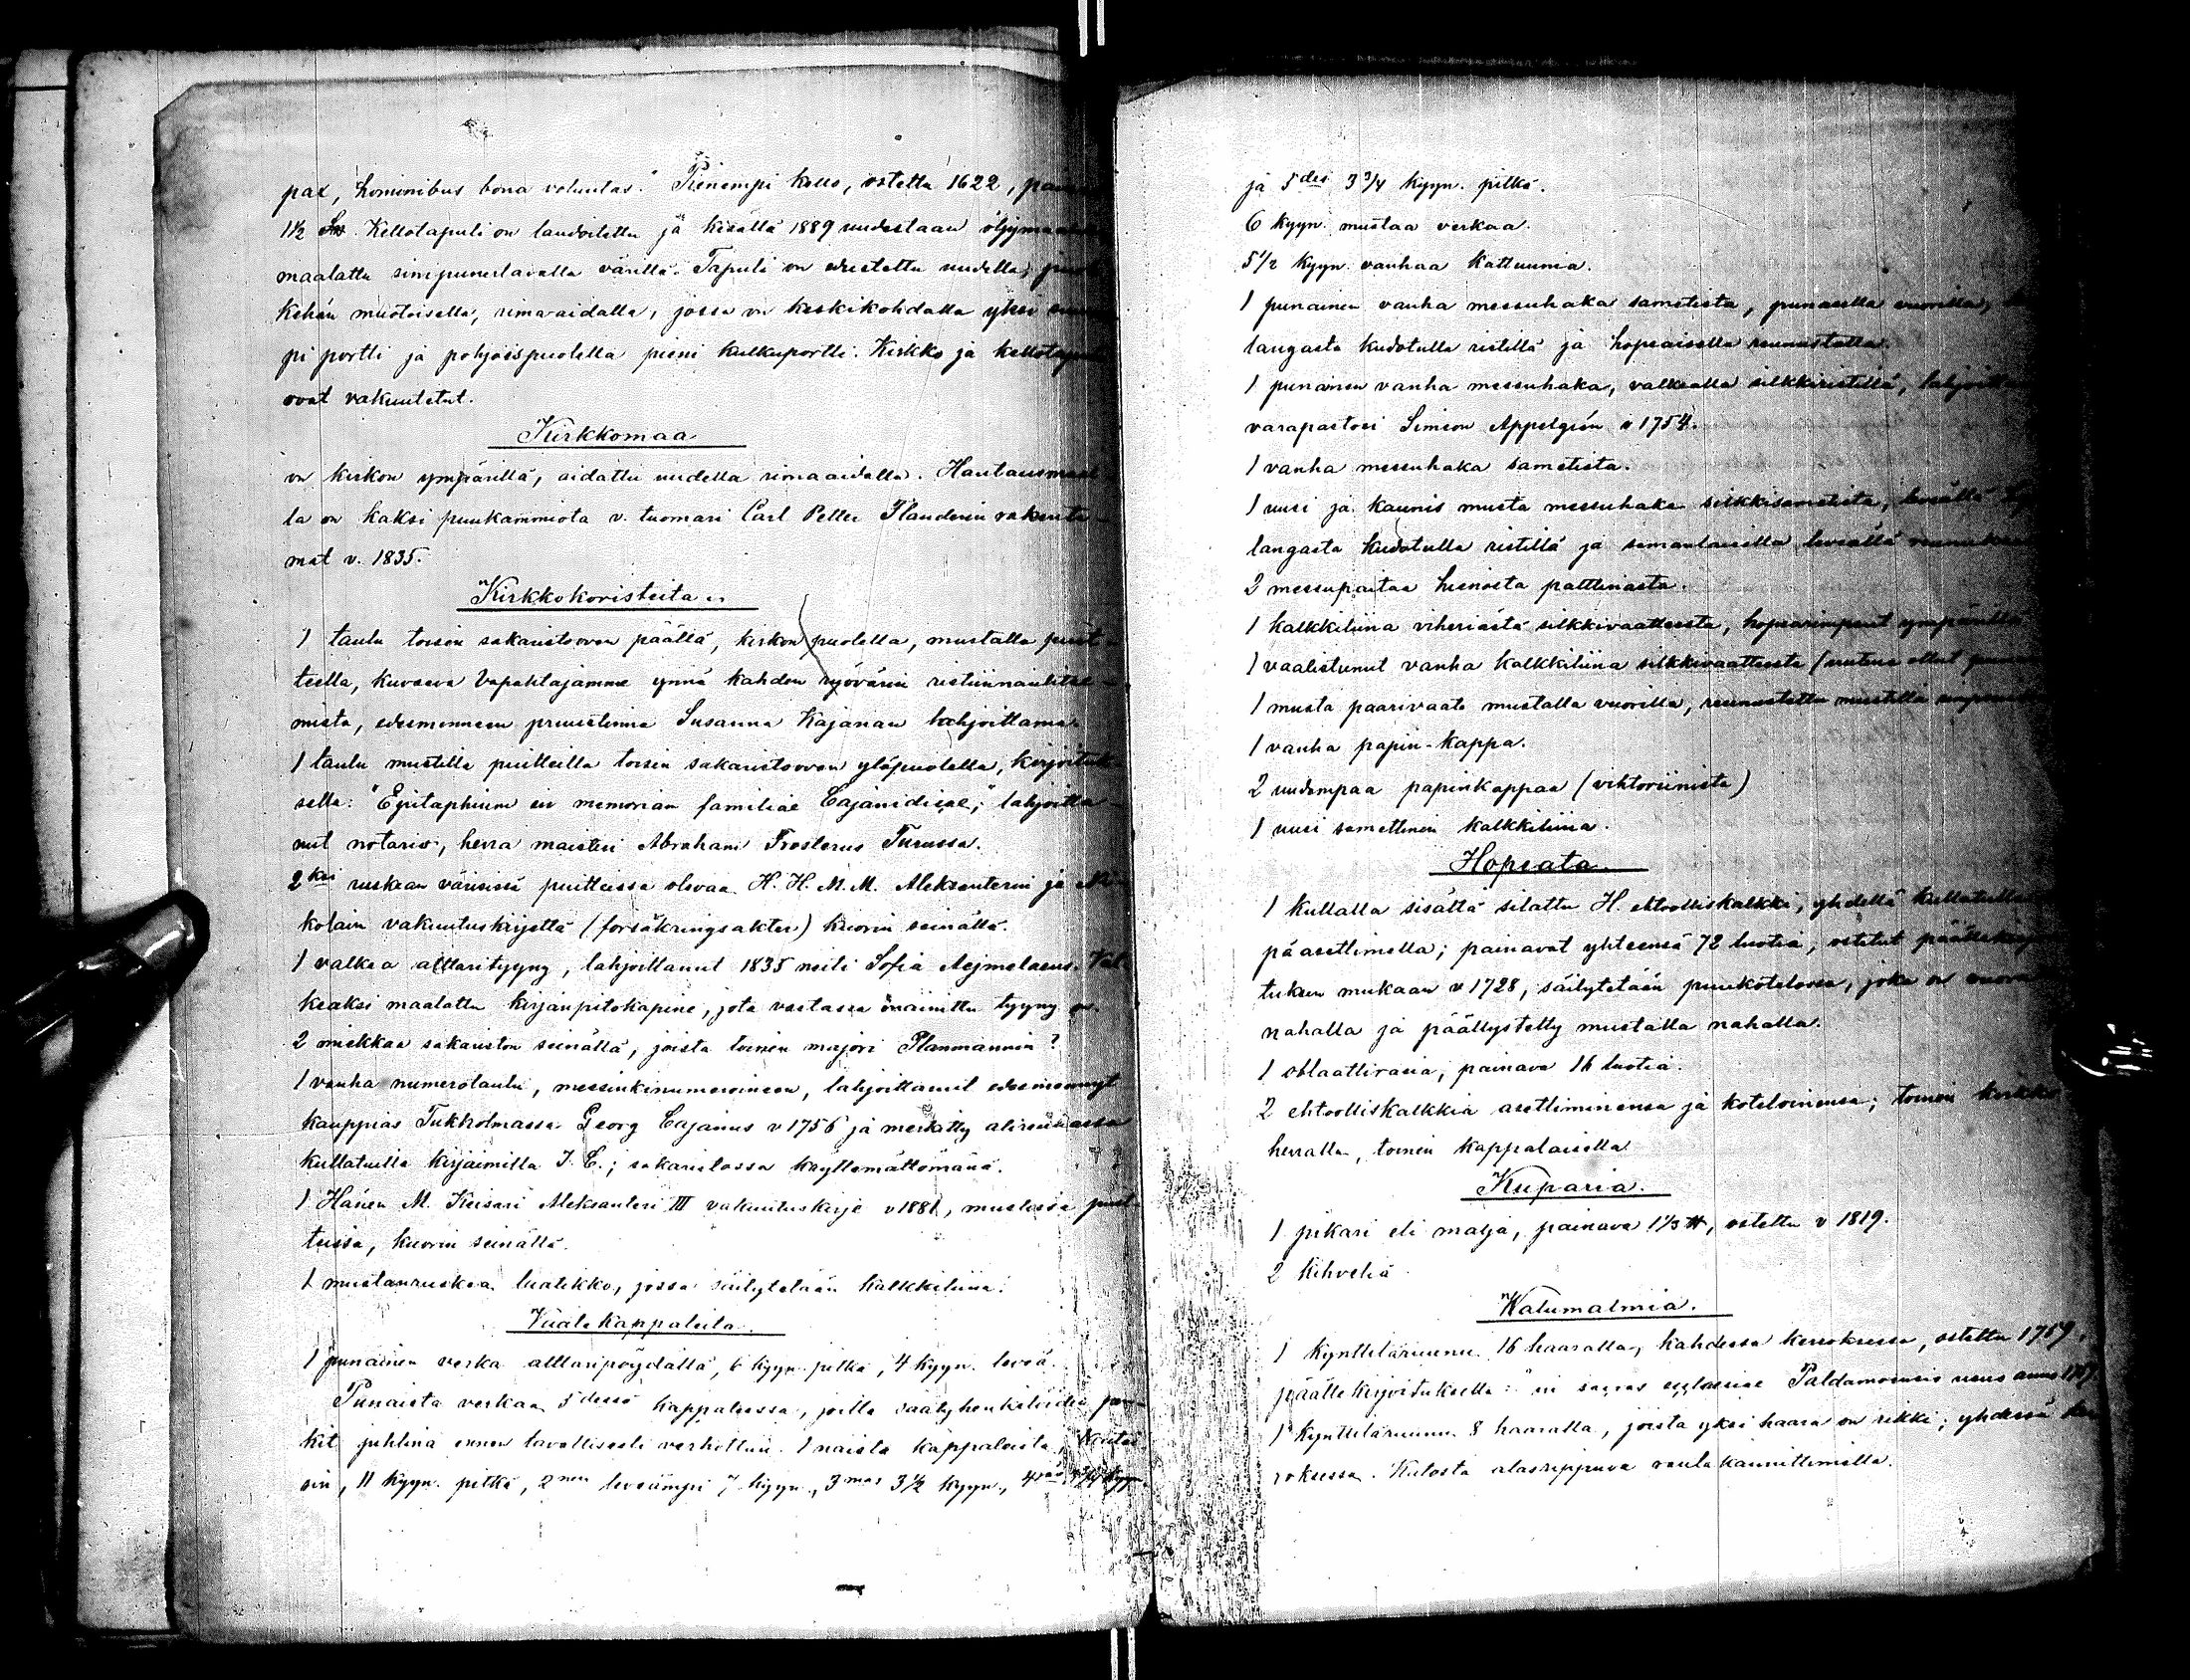 pax, hominibus bona voluntas." Pienempi kello, ostettu 1622,
1½ Kellotapuli on laudoitettu ja kesällä 1889 uudestaan
maalattu sinipunertavalla värillä. Tapuli on edustettu uudella,
kehän muotoisella, rimaaidalla, jossa on keskikohdalla yksi
pi portti ja pohjoispuolella pieni kulkuportti. Kirkko ja
ovat vakuutetut.
Kirkkomaa
on kirkon ympärillä, aidattu uudella rimaaidalla. Hautausmaal
la on kaksi puukammiota v. tuomari Carl Petter Planderin rakenta-
mat v. 1835.
Kirkkokoristeita
1 taulu toisen sakaristooven päällä, kirkon puolella, mustalla puit-
teella, kuvaava Vapahtajamme ynnä kahden ryövärin ristiinnaulitse-
mista, edesmenneen pruustinna Susanna Kajanan lahjoittama.
1 taulu mustilla puitteilla toisen sakaristooven yläpuolella, kirjoituk
sella: "Epitaphium in memoriam familiae Cajanidisae," lahjoitta-
nut notario, herra maisteri Abraham Frosterus Turussa.
2ksi ruskean värisissä puitteissa olevaa H. H. M. M. Aleksanterin ja Ni-
kolain vakuutuskirjettä (försäkringsakter) kuorin seinällä.
1 valkea alttarityyny, lahjoittanut 1835 neiti Sofia Aejmelaeus. Val-
keaksi maalattu kirjanpitokapine, jota vastassa mainittu tyyny on.
2 miekkaa sakariston seinällä, joista toinen majori Planmannin?
1 vanha numerotaulu, messinkinumeroineen, lahjoittanut edesmennyt
kauppias Tukholmassa Georg Cajanus v 1756 ja merkitty alireunassa
kullatuilla kirjaimilla J. C.; sakaristossa käyttämättömänä.
1 Hänen M. Keisari Aleksanteri III vakuutuskirje v 1881, mustissa puit
teissa, kuorin seinällä.
1 mustanruskea luatikko, jossa säilytetään kalkkiliina.
Vaatekappaleita.
1 punainen verka alttaripöydällä, 6 kyyn. pitkä, 4 kyyn. leveä.
Punaista verkaa 5dessä kappaleessa, joilla säätyhenkilöiden
kit juhlina ennen tavallisesti verhottiin. 1 näistä kappaleista,
sin, 11 kyyn. pitkä, 2nen leveämpi 7 kyyn., 3mas 3½ kyyn.,
ja 5des 3¾ kyyn. pitkä.
6 kyyn. mustaa verkaa.
5½ kyyn. vanhaa kattuunia.
1 punainen vanha messuhaka sametista, punaisella vuorilla,
langasta kudotulla ristillä ja hopeaisella reunustalla.
1 punainen vanha messuhaka, valkealla silkkiristillä,
varapastori Simeon Appelgrén v 1754.
1 vanha messuhaka sametista.
1 uusi ja kaunis musta messuhaka silkkisametista, leveällä
langasta kudotulla ristillä ja samanlaisella leveällä
2 messupaitaa hienosta palttinasta.
1 kalkkiliina viheriästä silkkivaatteesta, hopearimpsut ympärillä
1 vaalistunut vanha kalkkiliina silkkivaatteesta (uutena ollut
1 musta paarivaate mustalla vuorilla, reunustettu mustilla
1 vanha papin-kappa.
2 uudempaa papinkappaa (viktoriinista)
1 uusi samettinen kalkkiliina.
Hopeata.
1 kullalla sisältä silattu H. ehtoolliskalkki, yhdellä kullatulla
pä asettimella; painavat yhteensä 72 luotia, ostetut
tuksen mukaan v 1728, säilytetään puukotelossa, joka on
nahalla ja päällystetty mustalla nahalla.
1 oblaattirasia, painava 16 luotia.
2 ehtoolliskalkkia asettiminensa ja koteloinensa; toinen kirkko
herralla, toinen kappalaisella
Kuparia.
1 pikari eli malja, painava 1⅓ ℔, ostettu v 1819.
2 kihveliä
Kalumalmia.
1 kynttiläruunu 16 haaralla, kahdessa kerroksessa, ostettu 1759,
päällekirjoituksella: "in sacros ecclaesiae Paldamoensis usus anno
1 kynttiläruunu 8 haaralla, joista yksi haara on rikki; yhdessä ker
roksessa. Katosta alasrippuva raulakannittimilla.